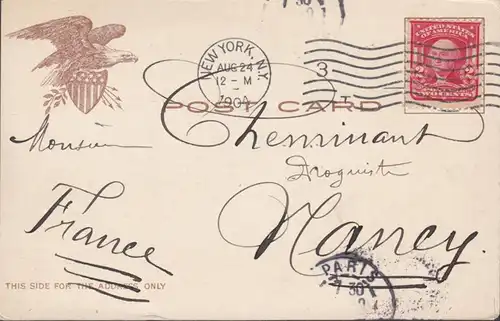 30
NEW YORK, N.Y.
AUG 24
12 - M
1904
3
UNITED STATES
OF AMERICA
TWO CENTS
POST CARD
Monsieur
Cheminant
Droguiste
Nancy
France
PARIS
30
THIS SIDE FOR THE ADDRESS ONLY